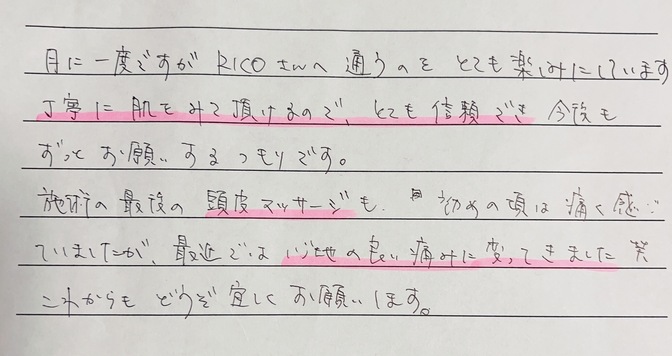 月に一度ですが RICOさんへ 通うのを とても楽しみにしています
丁寧に 肌をみて頂けるので、とても 信頼でき 今後も
ずっと お願いするつもりです。
施術の最後の 頭皮マッサージも 初めの頃は 痛く感じ
ていましたが、最近では いい心地の良い 痛みに 変ってきました 笑
これからも どうぞ 宜しく お願いします。